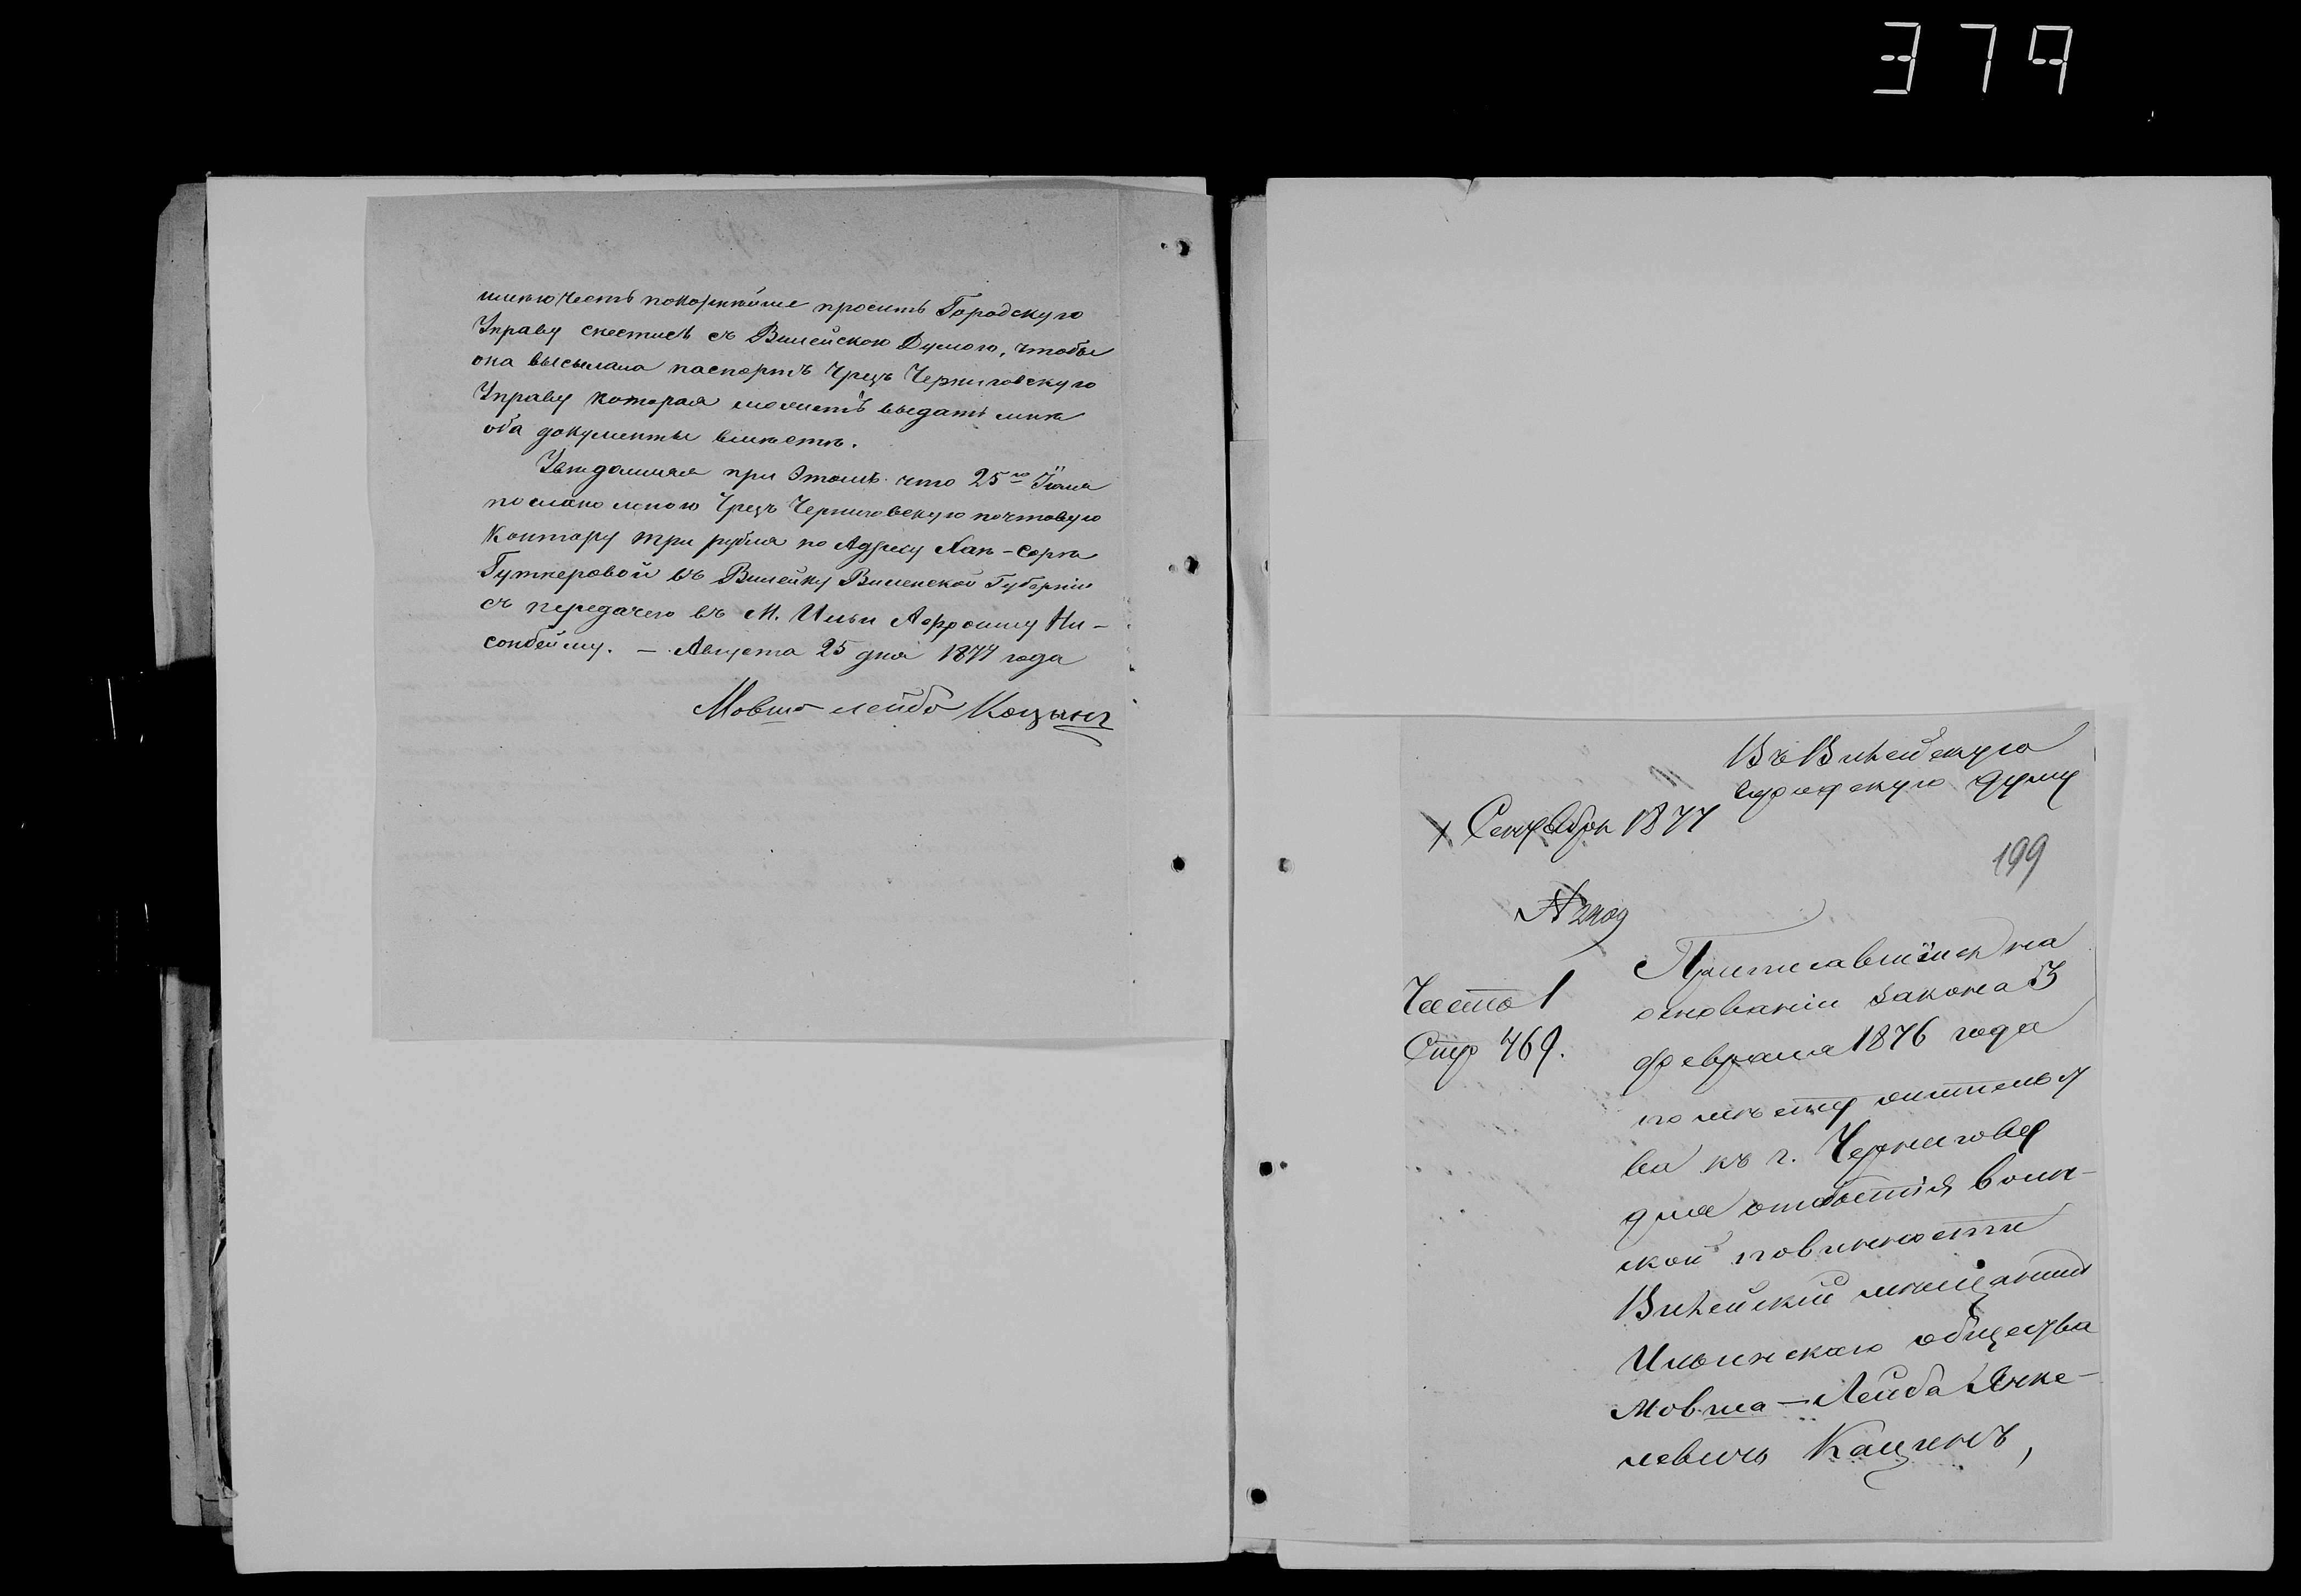 379
имѣю честь покорнѣйше просить Городскую
Управу снестись съ Вилейскою Думою, чтобы
она высылала паспортъ чрезъ Черниговскую
Управу которая можетъ выдать мнѣ
оба документы вмѣстѣ.
Увѣдомляя при этомъ что 25го Іюля
послано мною чрезъ Черниговскую почтовую
Контору три рубля по Адресу Хаи-Сорки
въ Вилейку Виленской Губерніи
съ передачею въ М. Ильи
Августа 25 дня 1877 года
Мовша лейба Кацынъ
Въ Вилейскую
городскую думу
Сентября 1877
199
№ 2409
Часто 1
Стр 469.
Приписавшійся на
основаніи закона 3
февраля 1876 года
по мѣсту жительст
ва къ г. Чернигову
для отбытія воин-
ской повинности
Вилейскій мѣщанинъ
Ильинскаго общества
Мовша-Лейба Янке-
левичъ Кацынъ,